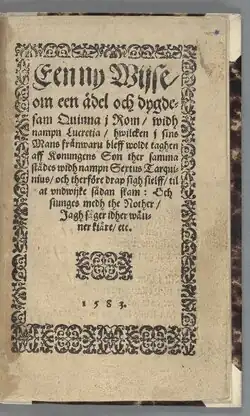 Eenny Wijse/
om een ädel och dygde-
sam Quinna j Rom/ widh
nampn Lucretia/ hwilcken j sins
Mans frånwaru bleff woldt taghen
aff Konungens Son ther samma
städes widh nampn Sextus Tarqui-
nius/ och therföre drap sigh sielff/ til
at vndwijke sådan skam: Och
siunges medh the Nother/
Jagh säger idher wän-
ner kläre/ etc.
1583.